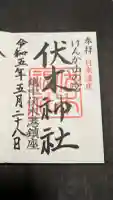 奉拝
日本遺産
けんか山の宮
伏木神社
令和五年五月二十八日